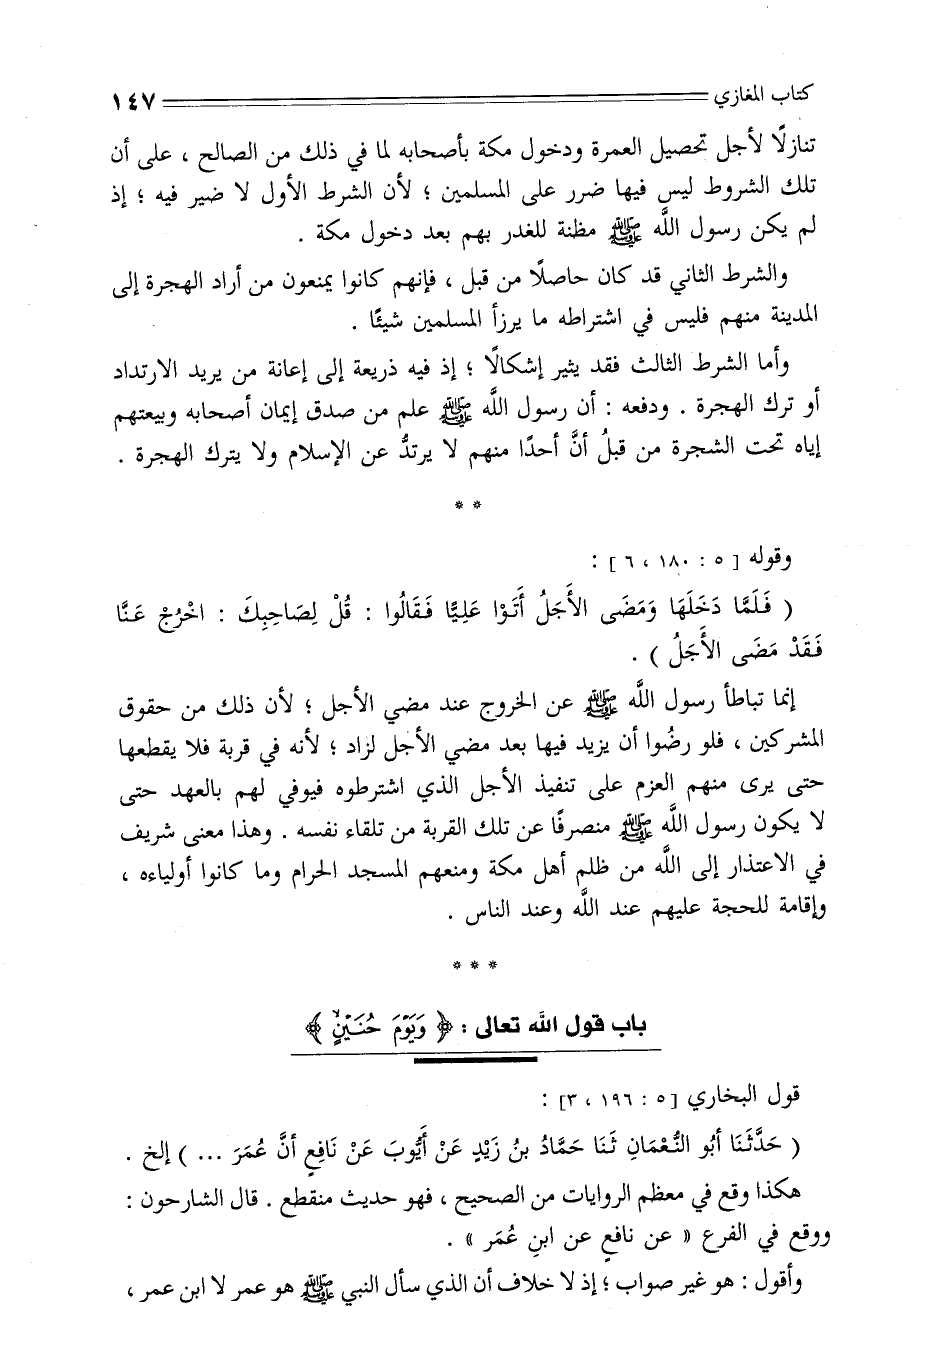 كتاب المغازي ١٤٧
تنازلًا لأجل تحصيل العمرة ودخول مكة بأصحابه لما في ذلك من الصالح ، على أن
تلك الشروط ليس فيها ضرر على المسلمين ؛ لأن الشرط الأول لا ضير فيه ؛ إذ
لم يكن رسول اللَّه ﷺ مظنة للغدر بهم بعد دخول مكة .
والشرط الثاني قد كان حاصلًا من قبل ، فإنهم كانوا يمنعون من أراد الهجرة إلى
المدينة منهم فليس في اشتراطه ما يرزأ المسلمين شيئًا .
وأما الشرط الثالث فقد يثير إشكالًا ؛ إذ فيه ذريعة إلى إعانة من يريد الارتداد
أو ترك الهجرة . ودفعه : أن رسول اللَّه ﷺ علم من صدق إيمان أصحابه وبيعتهم
إياه تحت الشجرة من قبلُ أنَّ أحدًا منهم لا يرتدُّ عن الإسلام ولا يترك الهجرة .
* *
وقوله [ ٥ : ١٨٠ ، ٦ ] :
( فَلَمَّا دَخَلَهَا وَمَضَى الأَجَلُ أَتَوْا عَلِيًّا فَقَالُوا : قُلْ لِصَاحِبِكَ : اخْرُجْ عَنَّا
فَقَدْ مَضَى الأَجَلُ ) .
إنما تباطأ رسول اللَّه ﷺ عن الخروج عند مضي الأجل ؛ لأن ذلك من حقوق
المشركين ، فلو رضُوا أن يزيد فيها بعد مضي الأجل لزاد ؛ لأنه في قربة فلا يقطعها
حتى يرى منهم العزم على تنفيذ الأجل الذي اشترطوه فيوفي لهم بالعهد حتى
لا يكون رسول اللَّه ﷺ منصرفًا عن تلك القربة من تلقاء نفسه . وهذا معنى شريف
في الاعتذار إلى اللَّه من ظلم أهل مكة ومنعهم المسجد الحرام وما كانوا أولياءه ،
وإقامة للحجة عليهم عند اللَّه وعند الناس .
* * *
باب قول الله تعالى : ﴿ وَيَوْمَ حُنَيْنٍ ﴾
قول البخاري [ ٥ : ١٩٦ ، ٣ ] :
( حَدَّثَنَا أَبُو النُّعْمَانِ ثَنَا حَمَّادُ بنُ زَيْدٍ عَنْ أَيُّوبَ عَنْ نَافِعٍ أنَّ عُمَرَ ... ) إلخ .
هكذا وقع في معظم الروايات من الصحيح ، فهو حديث منقطع . قال الشارحون :
ووقع في الفرع « عن نافعٍ عن ابنِ عُمَر » .
وأقول : هو غير صواب ؛ إذ لا خلاف أن الذي سأل النبي ﷺ هو عمر لا ابن عمر ،